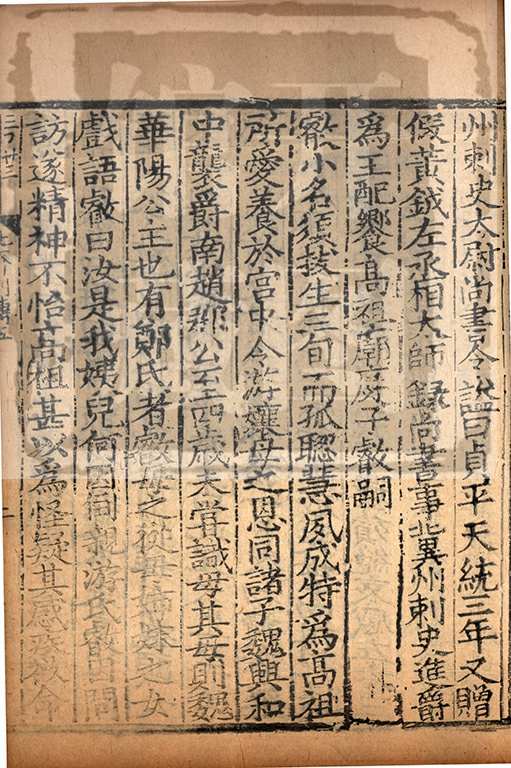 州刺史太尉尚書令謚曰貞平天統三年又贈
假黃鉞左丞相太師錄尚書事冀州刺史進爵
為王配饗高祖廟庭子叡嗣
叡小名須拔生三旬而孤聰慧夙成特為高祖
所愛養於宮中令游孃母之恩同諸子魏興和
中襲爵南趙郡公至四歲未嘗識母其母則魏
華陽公主也有鄭氏者叡母之從母姊妹之女
戲語叡曰汝是我姨兒何因倒親游氏叡因問
訪遂精神不怡高祖甚以為怪疑其感疾欲命